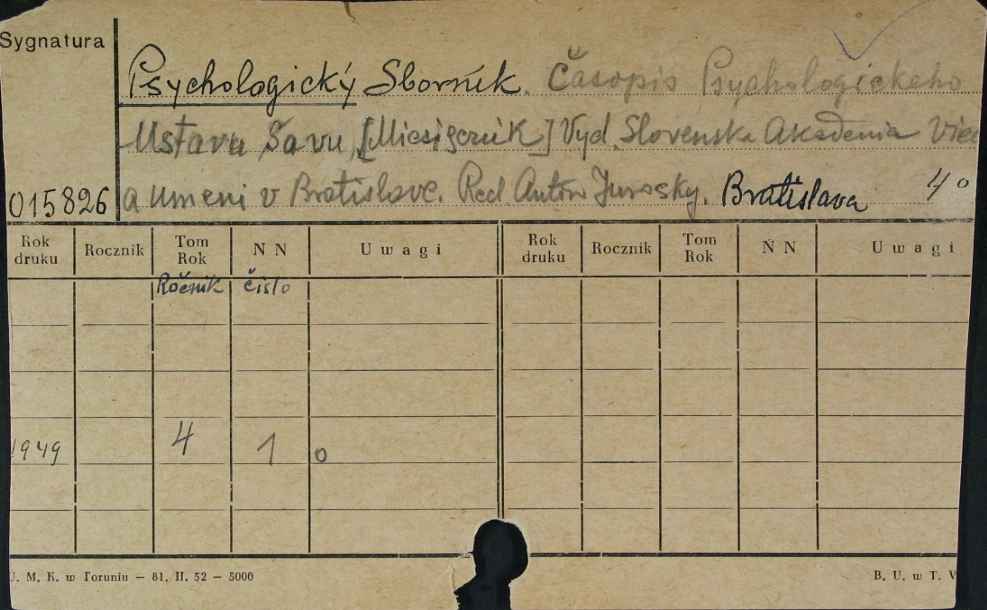 Sygnatura
Psychologický Sborník. Časopis Psychologickeho
Ustavu Savu [Miesięcznik] Vyd. Slovenska Akademia Vied
015826 a umeni v Bratislave. Red Anton Jurovsky. Bratislava 4°
Rok druku Rocznik Tom Rok N N Uwagi Rok druku Rocznik Tom Rok N N Uwagi
Ročník číslo
1949 4 1 o
U. M. K. w Toruniu — 81. II. 52 — 5000 B. U. w T. V